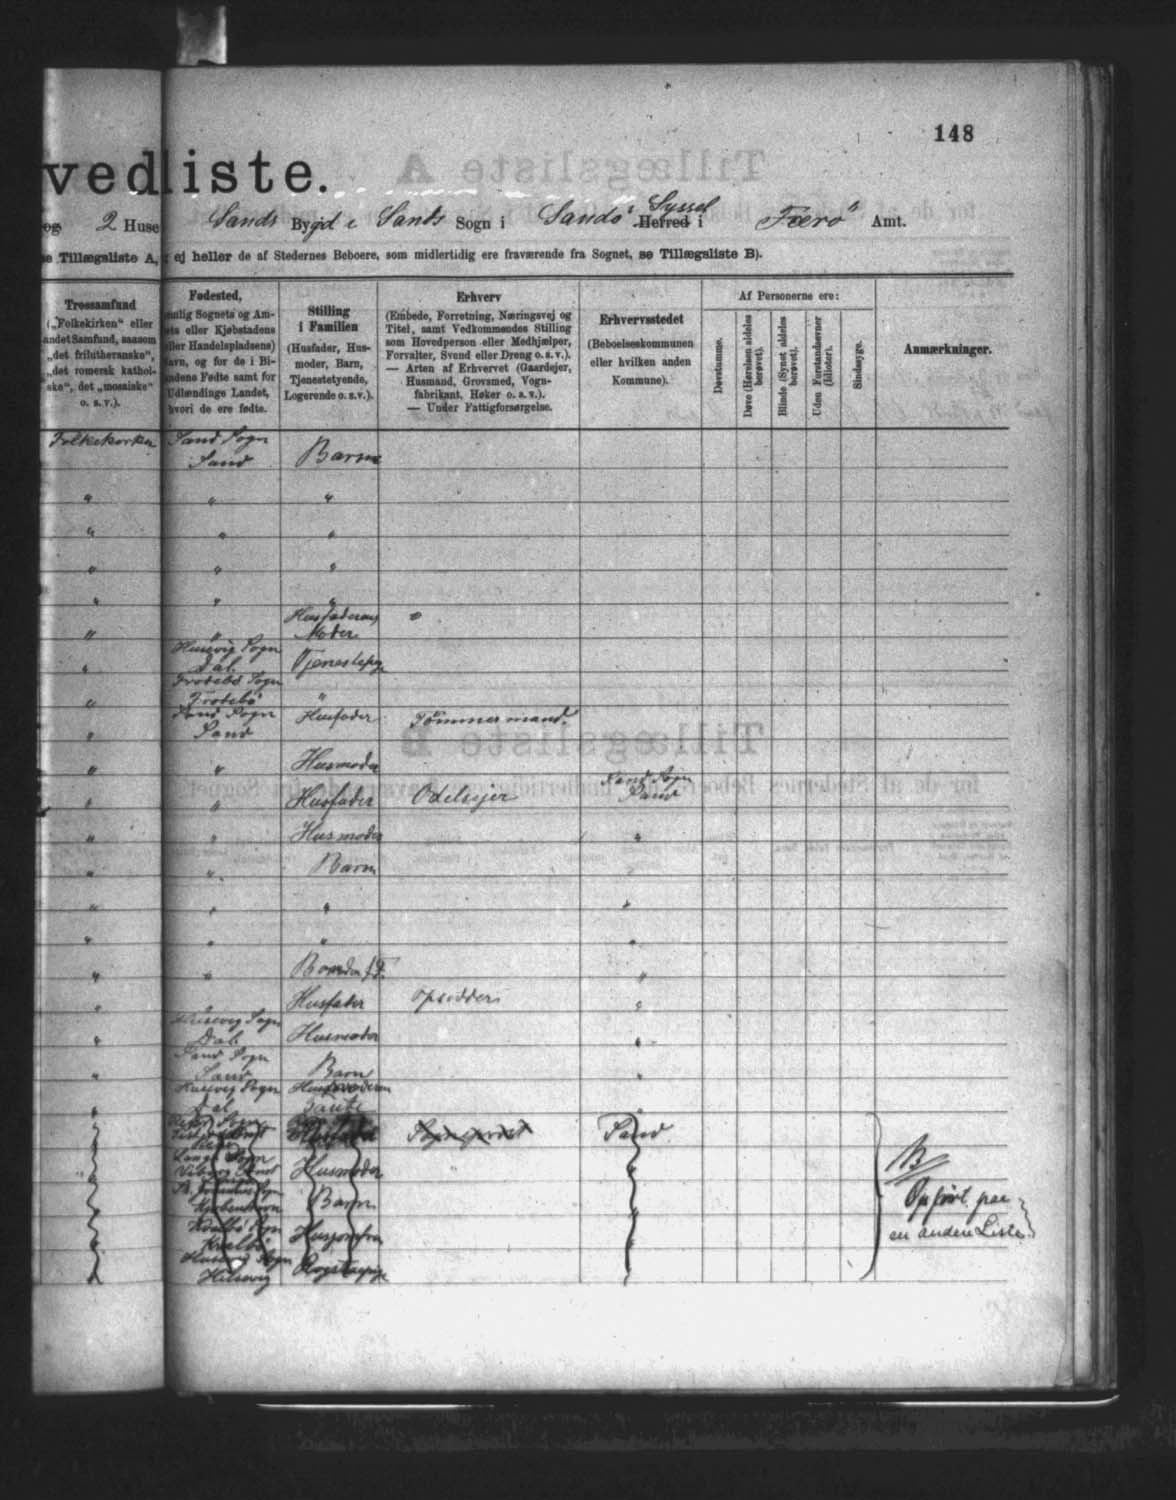 148
vedliste.
og 2 Huse Sands Bygd i Sands Sogn i Sandö Herred Syssel i Færö Amt.
se Tillægsliste A, ej heller de af Stedernes Beboere, som midlertidig ere fraværende fra Sognet, se Tillægsliste B).
Trossamfund
(„Folkekirken“ eller
andet Samfund, saasom
„det frilutheranske“,
„det romersk kathol-
ske“, det „mosaiske“
o. s. v.).
Fødested,
nemlig Sognets og Am-
ets eller Kjøbstadens
eller Handelspladsens)
Navn, og for de i Bi-
andene Fødte samt for
Udlændinge Landet,
hvori de ere fødte.
Stilling
i Familien
(Husfader, Hus-
moder, Barn,
Tjenestetyende,
Logerende o. s. v.).
Erhverv
(Embede, Forretning, Næringsvej og
Titel, samt Vedkommendes Stilling
som Hovedperson eller Medhjælper,
Forvalter, Svend eller Dreng o. s. v.).
— Arten af Erhvervet (Gaardejer,
Husmand, Grovsmed, Vogn-
fabrikant, Høker o. s. v.).
— Under Fattigforsørgelse.
Erhvervsstedet
(Beboelseskommunen
eller hvilken anden
Kommune).
Af Personerne ere:
Døvstumme.
Døve (Hørelsen aldeles
berøvet).
Blinde (Synet aldeles
berøvet).
Uden Forstandsevner
(Idioter).
Sindssyge.
Anmærkninger.
Folkekirken Sand Sogn
Sand Barn
" " "
" " "
" " "
" " "
Husfaderens
" " Moder
Husevig Sogn
" Dal Tjenestepige
Frodebö Sogn
" Frodebö "
Sand Sogn
" Sand Husfader Tömmermand.
" " Husmoder
Sand Sogn
" " Husfader Odelsejer Sand
" " Husmoder "
" " Barn "
" " " "
" " " "
" " "
" " Husfader Opsidder "
Husevig Sogn
" Dal Husmoder "
Sand Sogn
" Sand Barn "
Husevig Sogn
" Dal
Sand
Husmoder
Barn
Kjøbenhavn
Kvalbö Sogn
Kvalbö Husjomfru
Husevig Sogn
Husevig
NB
Opført paa
en anden Liste